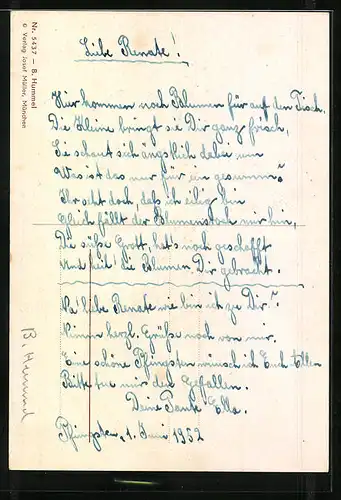 Liebe Renate!
Hier kommen noch Blumen für auf den Tisch.
Die Kleine bringt sie Dir ganz frisch,
Sie schaut sich ängstlich dabei um
Was ist das nur für ein gesumm?
Ihr seht doch, daß ich eilig bin
Gleich fällt der Blumenstock mir hin,
Die süße Krott, hat's noch geschafft
Und heil die Blumen Dir gebracht.
Na' liebe Renate wie bin ich zu Dir?
Nimm herzl. Grüße noch von mir.
Eine schöne Pfingsten wünsch ich Euch Allen
Bitte tue mir den Gefallen.
Deine Tante Ella.
Pfingsten, 1. Juni 1952
B. Hummel
Nr. 5437 — B. Hummel
© Verlag Josef Müller, München